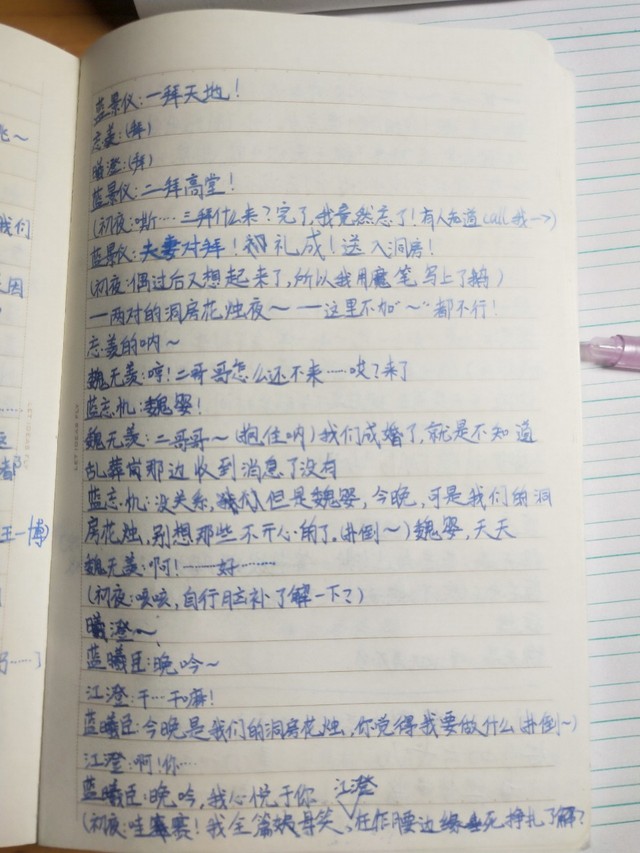 蓝景仪：一拜天地！
忘羡：(拜)
曦澄：(拜)
蓝景仪：二拜高堂！
(初夜：嘶…三拜什么来？完了，我竟然忘了！有人知道call我一>)
蓝景仪：夫妻对拜！礼成！送入洞房！
(初夜：偶过后又想起来了，所以我用魔笔写上了)
——两对的洞房花烛夜～——这里不加“～”都不行！
忘羡的呐～
魏无羡：哼！二哥哥怎么还不来……哎？来了
蓝忘机：魏婴！
魏无羡：二哥哥～(抱住呐)我们成婚了，就是不知道
乱葬岗那边收到消息了没有
蓝忘机：没关系，但是魏婴，今晚，可是我们的洞
房花烛，别想那些不开心的了。(扑倒～)魏婴，天天
魏无羡：啊！……好……
(初夜：咳咳，自行脑补了解一下？)
曦澄～
蓝曦臣：晚吟～
江澄：干…干嘛！
蓝曦臣：今晚是我们的洞房花烛，你觉得我要做什么(扑倒～)
江澄：啊！你…
蓝曦臣：晚吟，我心悦于你
江澄
(初夜：哇塞赛！我全篇姨母笑、在作腰边缘垂死挣扎了解？
王一博)
我们
因